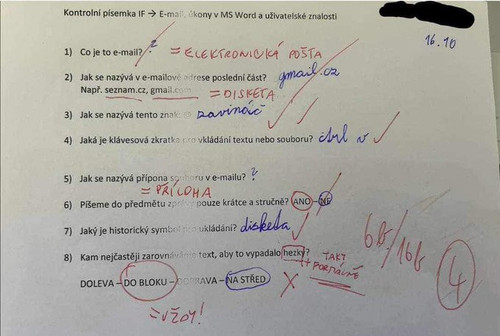 Kontrolní písemka IF → E-mail, úkony v MS Word a uživatelské znalosti
16.10
1) Co je to e-mail? ? = ELEKTRONICKÁ POŠTA
2) Jak se nazývá v e-mailové adrese poslední část? gmail.cz
Např. seznam.cz, gmail.com = DISKETA
3) Jak se nazývá tento znak zavináč
4) Jaká je klávesová zkratka pro vkládání textu nebo souboru? ctrl v
5) Jak se nazývá přípona souboru v e-mailu? ?
= PŘÍLOHA
6) Píšeme do předmětu zprávy pouze krátce a stručně? ANO – NE
7) Jaký je historický symbol pro ukládání? disketa
8) Kam nejčastěji zarovnáváme text, aby to vypadalo hezky?
DOLEVA – DO BLOKU – DOPRAVA – NA STŘED
= VŽDY!
6b/16b
4